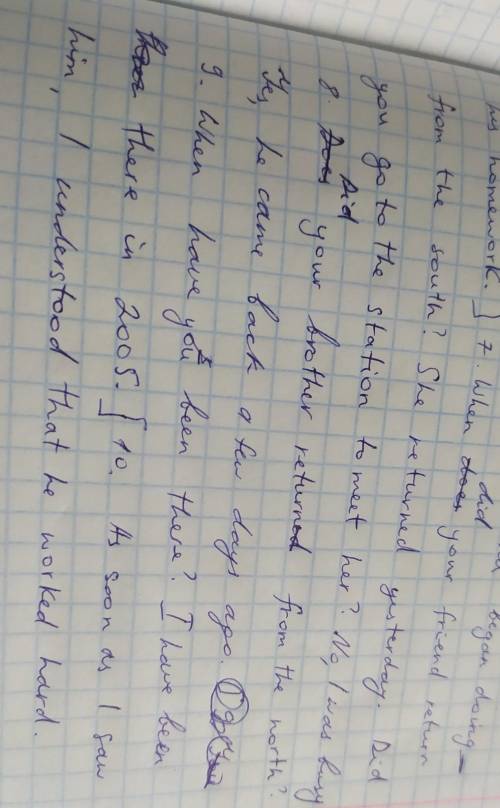 his homework. 7. When did your friend return
from the south? She returned yesterday. Did
you go to the station to meet her? No, I was busy
8. Did your brother returned from the north?
Yes, he came back a few days ago.
9. When have you been there? I have been
there in 2005. 10. As soon as I saw
him, I understood that he worked hard.